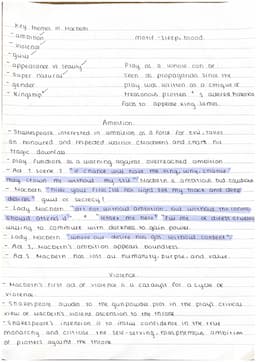 Key themes in Macbeth
- ambition
- violence
- guilt
- appearance vs reality
- super natural
- gender
- kingship
motif - sleep, blood
Play as a whole can be
seen as propaganda since the
play was written as a critique of
treasonous plotters & altered historical
facts to appease King James
Ambition
- Shakespeare interested in ambition as a force for evil - takes
an honoured and respected warrior (Macbeth) and charts his
tragic downfall
- Play functions as a warning against overreached ambition
- Act 1, Scene 3 "if chance will have me king, why, chance
may crown me without my stir" Macbeth is ambitious but cautious
- Macbeth "hide your fires, let not light see my black and deep
desires" guilt or secrecy?
- Lady Macbeth "art not without ambition, but without the illness
should attend it" "unsex me here" "fill me of direst cruelty"
willing to commune with darkness to gain power
- Lady Macbeth "where our desire is got without content"
- Act 3, Macbeth's ambition appears boundless
- Act 5 Macbeth has lost all humanity, purpose and value
Violence
- Macbeth's first act of violence is a catalyst for a cycle of
violence
- Shakespeare alludes to the gunpowder plot in the play's critical
view of Macbeth's violent ascension to the throne
- Shakespeare's intention is to instil confidence in the true
monarchy and criticise the self-serving, blasphemous ambition
of plotters against the throne